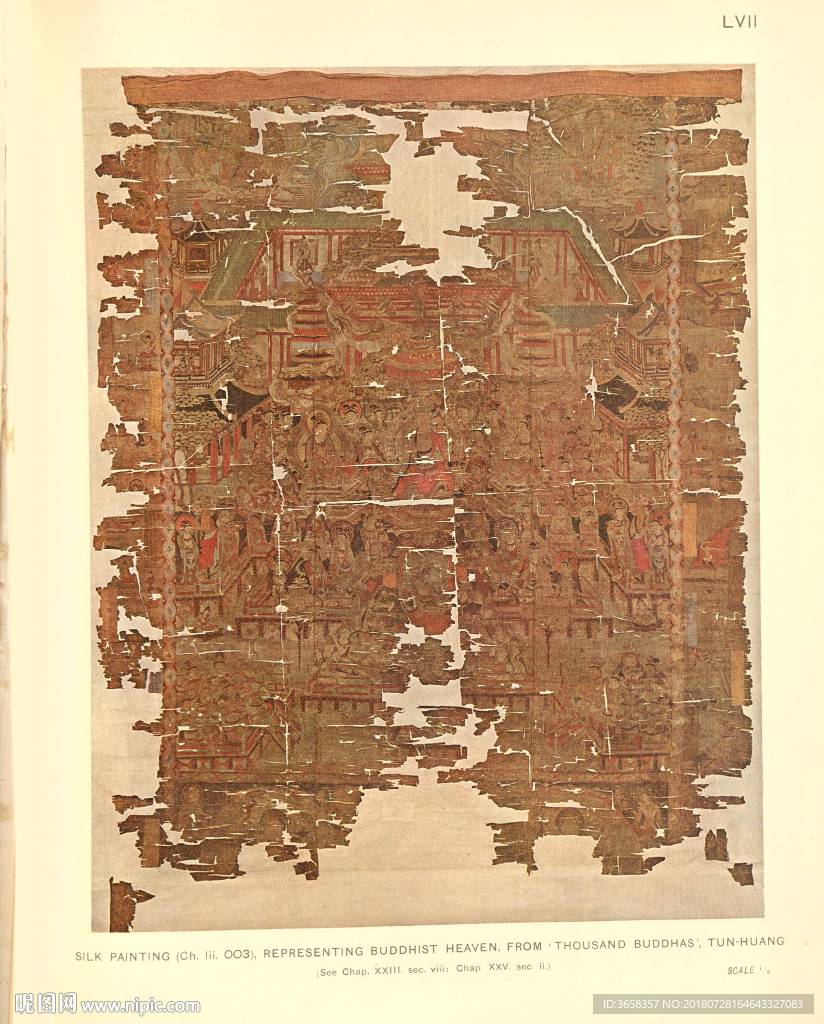 LVII
SILK PAINTING (Ch. lii. 003), REPRESENTING BUDDHIST HEAVEN, FROM 'THOUSAND BUDDHAS', TUN-HUANG.
(See Chap. XXIII. sec. viii; Chap. XXV. sec. ii.)
SCALE 1/8
昵图网 www.nipic.com
ID:3658357 NO:20180728164643327083